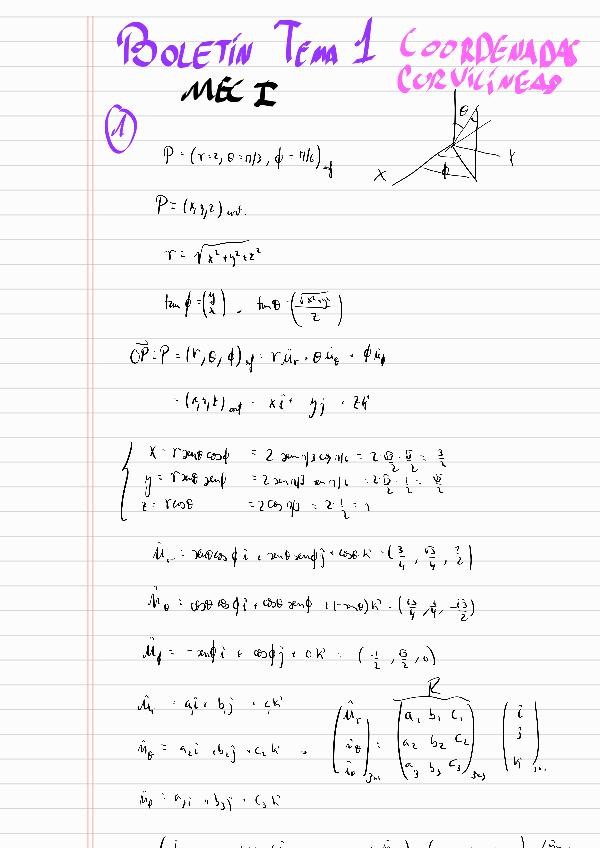 BOLETÍN TEMA 1 COORDENADAS
MEC I CURVILÍNEAS
1
θ
Y
X
ϕ
P = (r=2, θ=π/3, ϕ=π/6)
P = (x,y,z) cart.
r = √x²+y²+z²
tan ϕ = (y/x) , tan θ = (√x²+y²/z)
OP = P = (r, θ, ϕ) = r û_r + θ û_θ + ϕ û_ϕ
= (x,y,z) cart = xî + yĵ + zk̂
x = r senθ cosϕ = 2 sen π/3 cos π/6 = 2·√3/2·√3/2 = 3/2
y = r senθ senϕ = 2 sen π/3 sen π/6 = 2·√3/2·1/2 = √3/2
z = r cosθ = 2 cos π/3 = 2·1/2 = 1
û_r = senθ cosϕ î + senθ senϕ ĵ + cosθ k̂ = (3/4, √3/4, 1/2)
û_θ = cosθ cosϕ î + cosθ senϕ + (-senθ) k̂ = (√3/4, 1/4, -√3/2)
û_ϕ = -senϕ î + cosϕ ĵ + 0 k̂ = (-1/2, √3/2, 0)
R
û_r = a₁î + b₁ĵ + c₁k̂
û_θ = a₂î + b₂ĵ + c₂k̂ → (û_r û_θ û_ϕ)3x1 = (a₁ b₁ c₁ a₂ b₂ c₂ a₃ b₃ c₃)3x3 (î ĵ k̂)3x1
û_ϕ = a₃î + b₃ĵ + c₃k̂